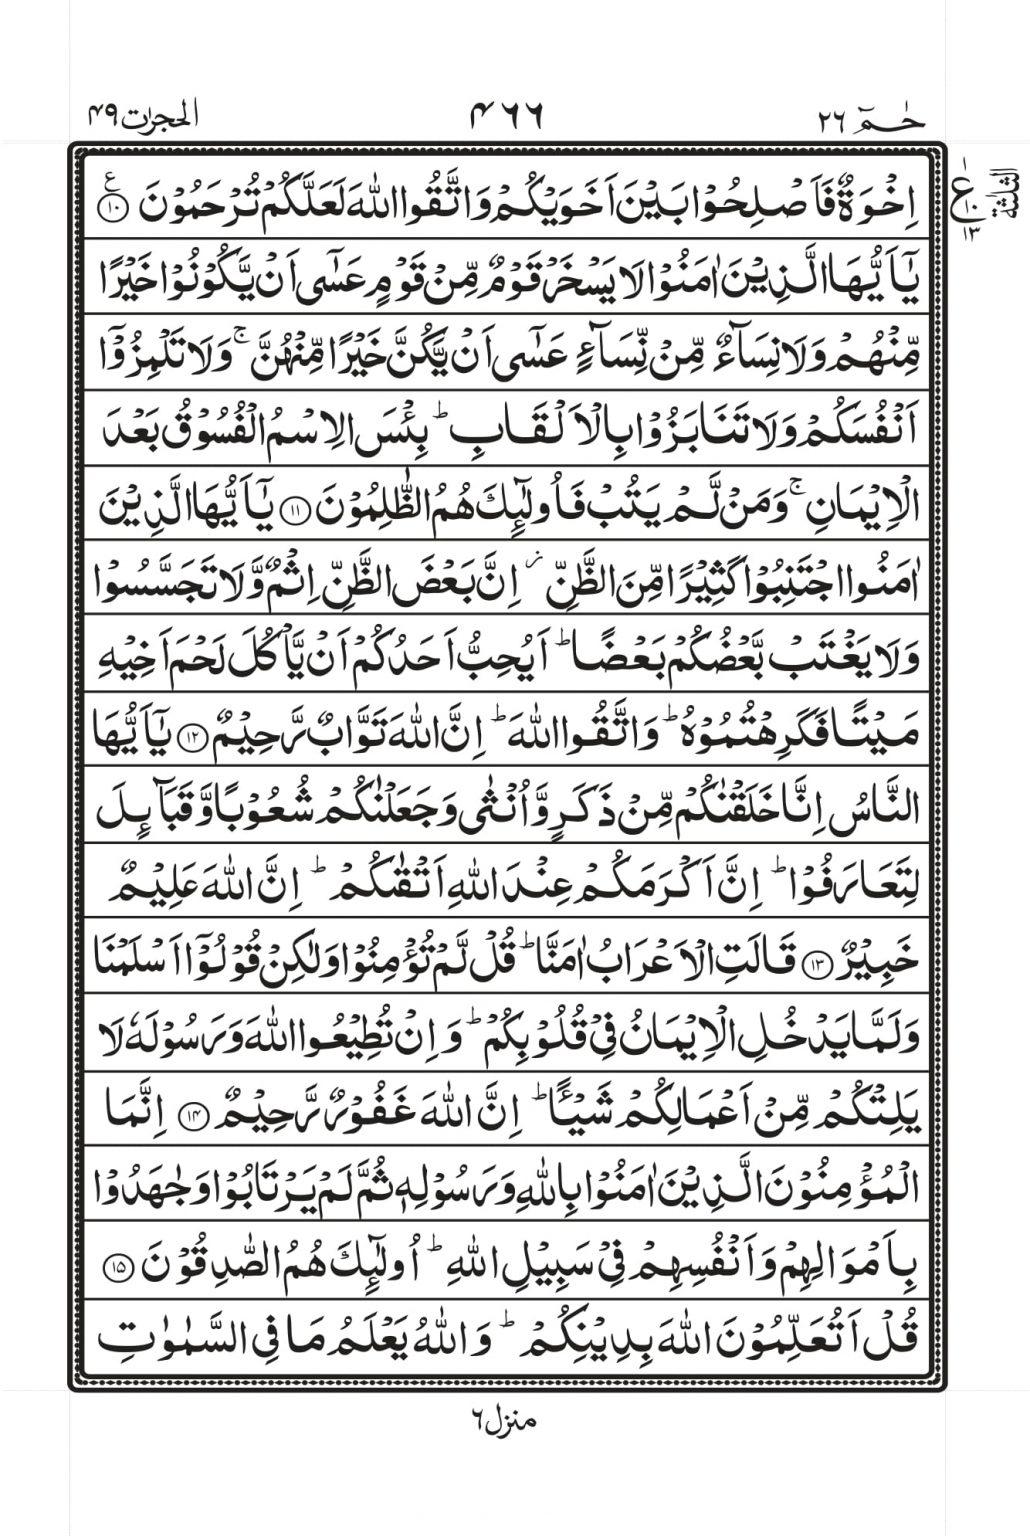 حٰمٓ ٢٦
۴٦٦
الحجرٰت ۴٩
اِخْوَةٌ فَاَصْلِحُوْا بَيْنَ اَخَوَيْكُمْ وَاتَّقُوا اللّٰهَ لَعَلَّكُمْ تُرْحَمُوْنَ ؏ ﴿١٠﴾
يٰٓاَيُّهَا الَّذِيْنَ اٰمَنُوْا لَا يَسْخَرْ قَوْمٌ مِّنْ قَوْمٍ عَسٰٓى اَنْ يَّكُوْنُوْا خَيْرًا
مِّنْهُمْ وَلَا نِسَآءٌ مِّنْ نِّسَآءٍ عَسٰٓى اَنْ يَّكُنَّ خَيْرًا مِّنْهُنَّ ۚ وَلَا تَلْمِزُوْٓا
اَنْفُسَكُمْ وَلَا تَنَابَزُوْا بِالْاَلْقَابِ ؕ بِئْسَ الِاسْمُ الْفُسُوْقُ بَعْدَ
الْاِيْمَانِ ۚ وَمَنْ لَّمْ يَتُبْ فَاُولٰٓئِكَ هُمُ الظّٰلِمُوْنَ ﴿١١﴾ يٰٓاَيُّهَا الَّذِيْنَ
اٰمَنُوا اجْتَنِبُوْا كَثِيْرًا مِّنَ الظَّنِّ ز اِنَّ بَعْضَ الظَّنِّ اِثْمٌ وَّلَا تَجَسَّسُوْا
وَلَا يَغْتَبْ بَّعْضُكُمْ بَعْضًا ؕ اَيُحِبُّ اَحَدُكُمْ اَنْ يَّاْكُلَ لَحْمَ اَخِيْهِ
مَيْتًا فَكَرِهْتُمُوْهُ ؕ وَاتَّقُوا اللّٰهَ ؕ اِنَّ اللّٰهَ تَوَّابٌ رَّحِيْمٌ ﴿١٢﴾ يٰٓاَيُّهَا
النَّاسُ اِنَّا خَلَقْنٰكُمْ مِّنْ ذَكَرٍ وَّاُنْثٰى وَجَعَلْنٰكُمْ شُعُوْبًا وَّقَبَآئِلَ
لِتَعَارَفُوْا ؕ اِنَّ اَكْرَمَكُمْ عِنْدَ اللّٰهِ اَتْقٰىكُمْ ؕ اِنَّ اللّٰهَ عَلِيْمٌ
خَبِيْرٌ ﴿١٣﴾ قَالَتِ الْاَعْرَابُ اٰمَنَّا ؕ قُلْ لَّمْ تُؤْمِنُوْا وَلٰكِنْ قُوْلُوْٓا اَسْلَمْنَا
وَلَمَّا يَدْخُلِ الْاِيْمَانُ فِيْ قُلُوْبِكُمْ ؕ وَاِنْ تُطِيْعُوا اللّٰهَ وَرَسُوْلَهٗ لَا
يَلِتْكُمْ مِّنْ اَعْمَالِكُمْ شَيْـًٔا ؕ اِنَّ اللّٰهَ غَفُوْرٌ رَّحِيْمٌ ﴿١۴﴾ اِنَّمَا
الْمُؤْمِنُوْنَ الَّذِيْنَ اٰمَنُوْا بِاللّٰهِ وَرَسُوْلِهٖ ثُمَّ لَمْ يَرْتَابُوْا وَجٰهَدُوْا
بِاَمْوَالِهِمْ وَاَنْفُسِهِمْ فِيْ سَبِيْلِ اللّٰهِ ؕ اُولٰٓئِكَ هُمُ الصّٰدِقُوْنَ ﴿١٥﴾
قُلْ اَتُعَلِّمُوْنَ اللّٰهَ بِدِيْنِكُمْ ؕ وَاللّٰهُ يَعْلَمُ مَا فِي السَّمٰوٰتِ
الثلثة
١
ع
١٠
١٣
منزل ٦